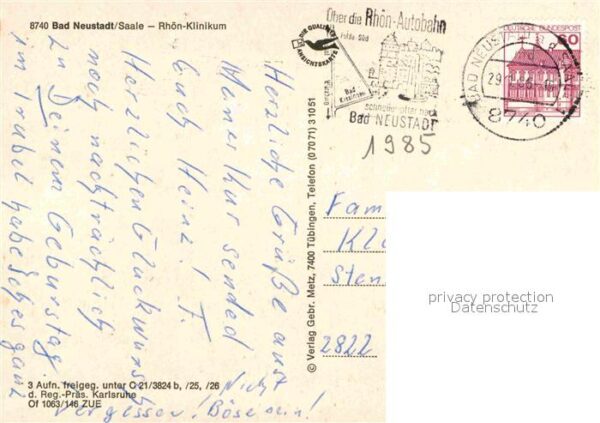 8740 Bad Neustadt/Saale – Rhön-Klinikum
Über die Rhön-Autobahn
Fulda Süd
DIE QUALITÄTS
ANSICHTSKARTE
Bad Kissingen
schneller oder nach
Bad NEUSTADT
1985
DEUTSCHE BUNDESPOST
60
BAD NEUSTADT
29
8740
Herzliche Grüße aus
Meiner Kur sendet
Euch Heinz! F.
Herzlichen Glückwunsch
noch nachträglich
zu Deinem Geburtstag
im Trubel habe ich es ganz
vergessen! Nicht
Böse sein!
© Verlag Gebr. Metz, 7400 Tübingen, Telefon (07071) 31051
Fam
Kl
Sten
2822
privacy protection
Datenschutz
3 Aufn. freigeg. unter G 21/3824 b, /25, /26
d. Reg.-Präs. Karlsruhe
Of 1063/146 ZUE